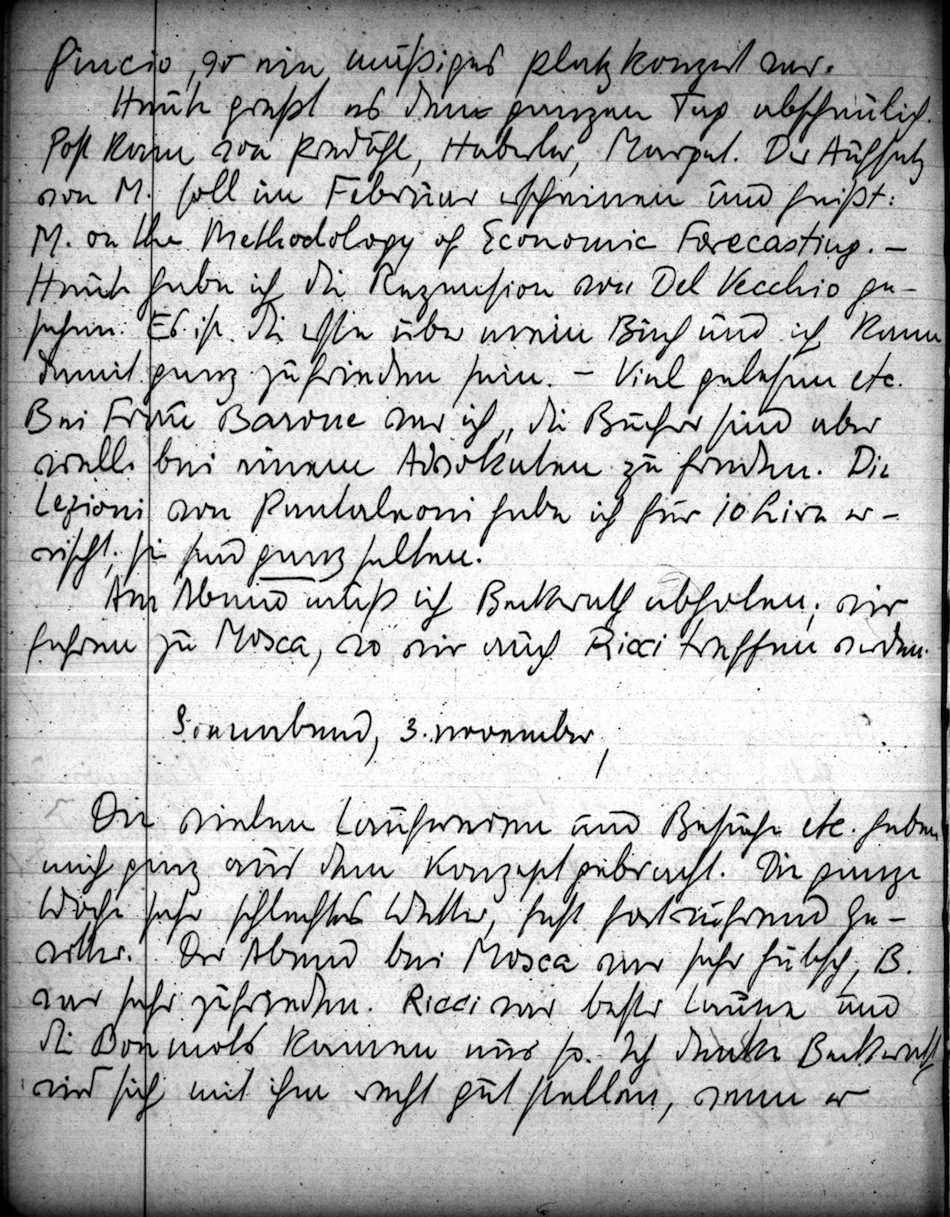 Pincio, wo ein mäßiges Platzkonzert war.
Heute gießt es den ganzen Tag abscheulich.
Post kam von Haberler, Marget. Der Aufsatz
von M. soll im Februar erscheinen und heißt:
M. on the Methodology of Economic Forecasting. –
Heute habe ich die Rezension von Del Vecchio ge-
sehen. Es ist die erste über mein Buch und ich kann
damit ganz zufrieden sein. – Viel gelesen etc.
Bei Frau Barone war ich, die Bücher sind aber
alle bei einem Advokaten zu finden. Die
Lezioni von Pantaleoni habe ich für 10 Lire er-
wischt; sie sind ganz selten.
Am Abend muß ich Beckerath abholen; wir
fahren zu Mosca, wo wir auch Ricci treffen werden.
Sonnabend, 3. november,
Die vielen Laufereien und Besuche etc. haben
mich ganz aus dem Konzept gebracht. Die ganze
Woche sehr schlechtes Wetter, fast fortwährend Ge-
witter. Der Abend bei Mosca war sehr hübsch, B.
war sehr zufrieden. Ricci war bester Laune und
die Bonmots kamen nur so. Ich denke Beckerath
wird sich mit ihm recht gut stellen, wenn er